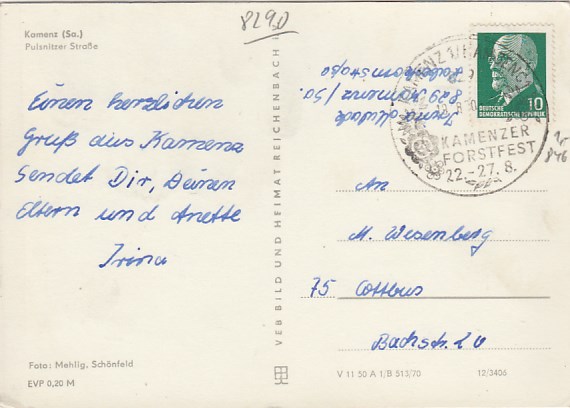 8290
Kamenz (Sa.)
Pulsnitzer Straße
Einen herzlichen
Gruß aus Kamenz
Sendet Dir, Deinen
Eltern und Anette
Irina
Foto: Mehlig, Schönfeld
EVP 0,20 M
VEB BILD UND HEIMAT REICHENBACH i
Irina
829 Kamenz / Sa.
KAMENZ 1
KAMENZER
FORSTFEST
22.-27. 8.
DEUTSCHE
DEMOKRATISCHE REPUBLIK
10
An
M. Wesenberg
75 Cottbus
Bachstr. 20
V 11 50 A 1/B 513/70
12/3406